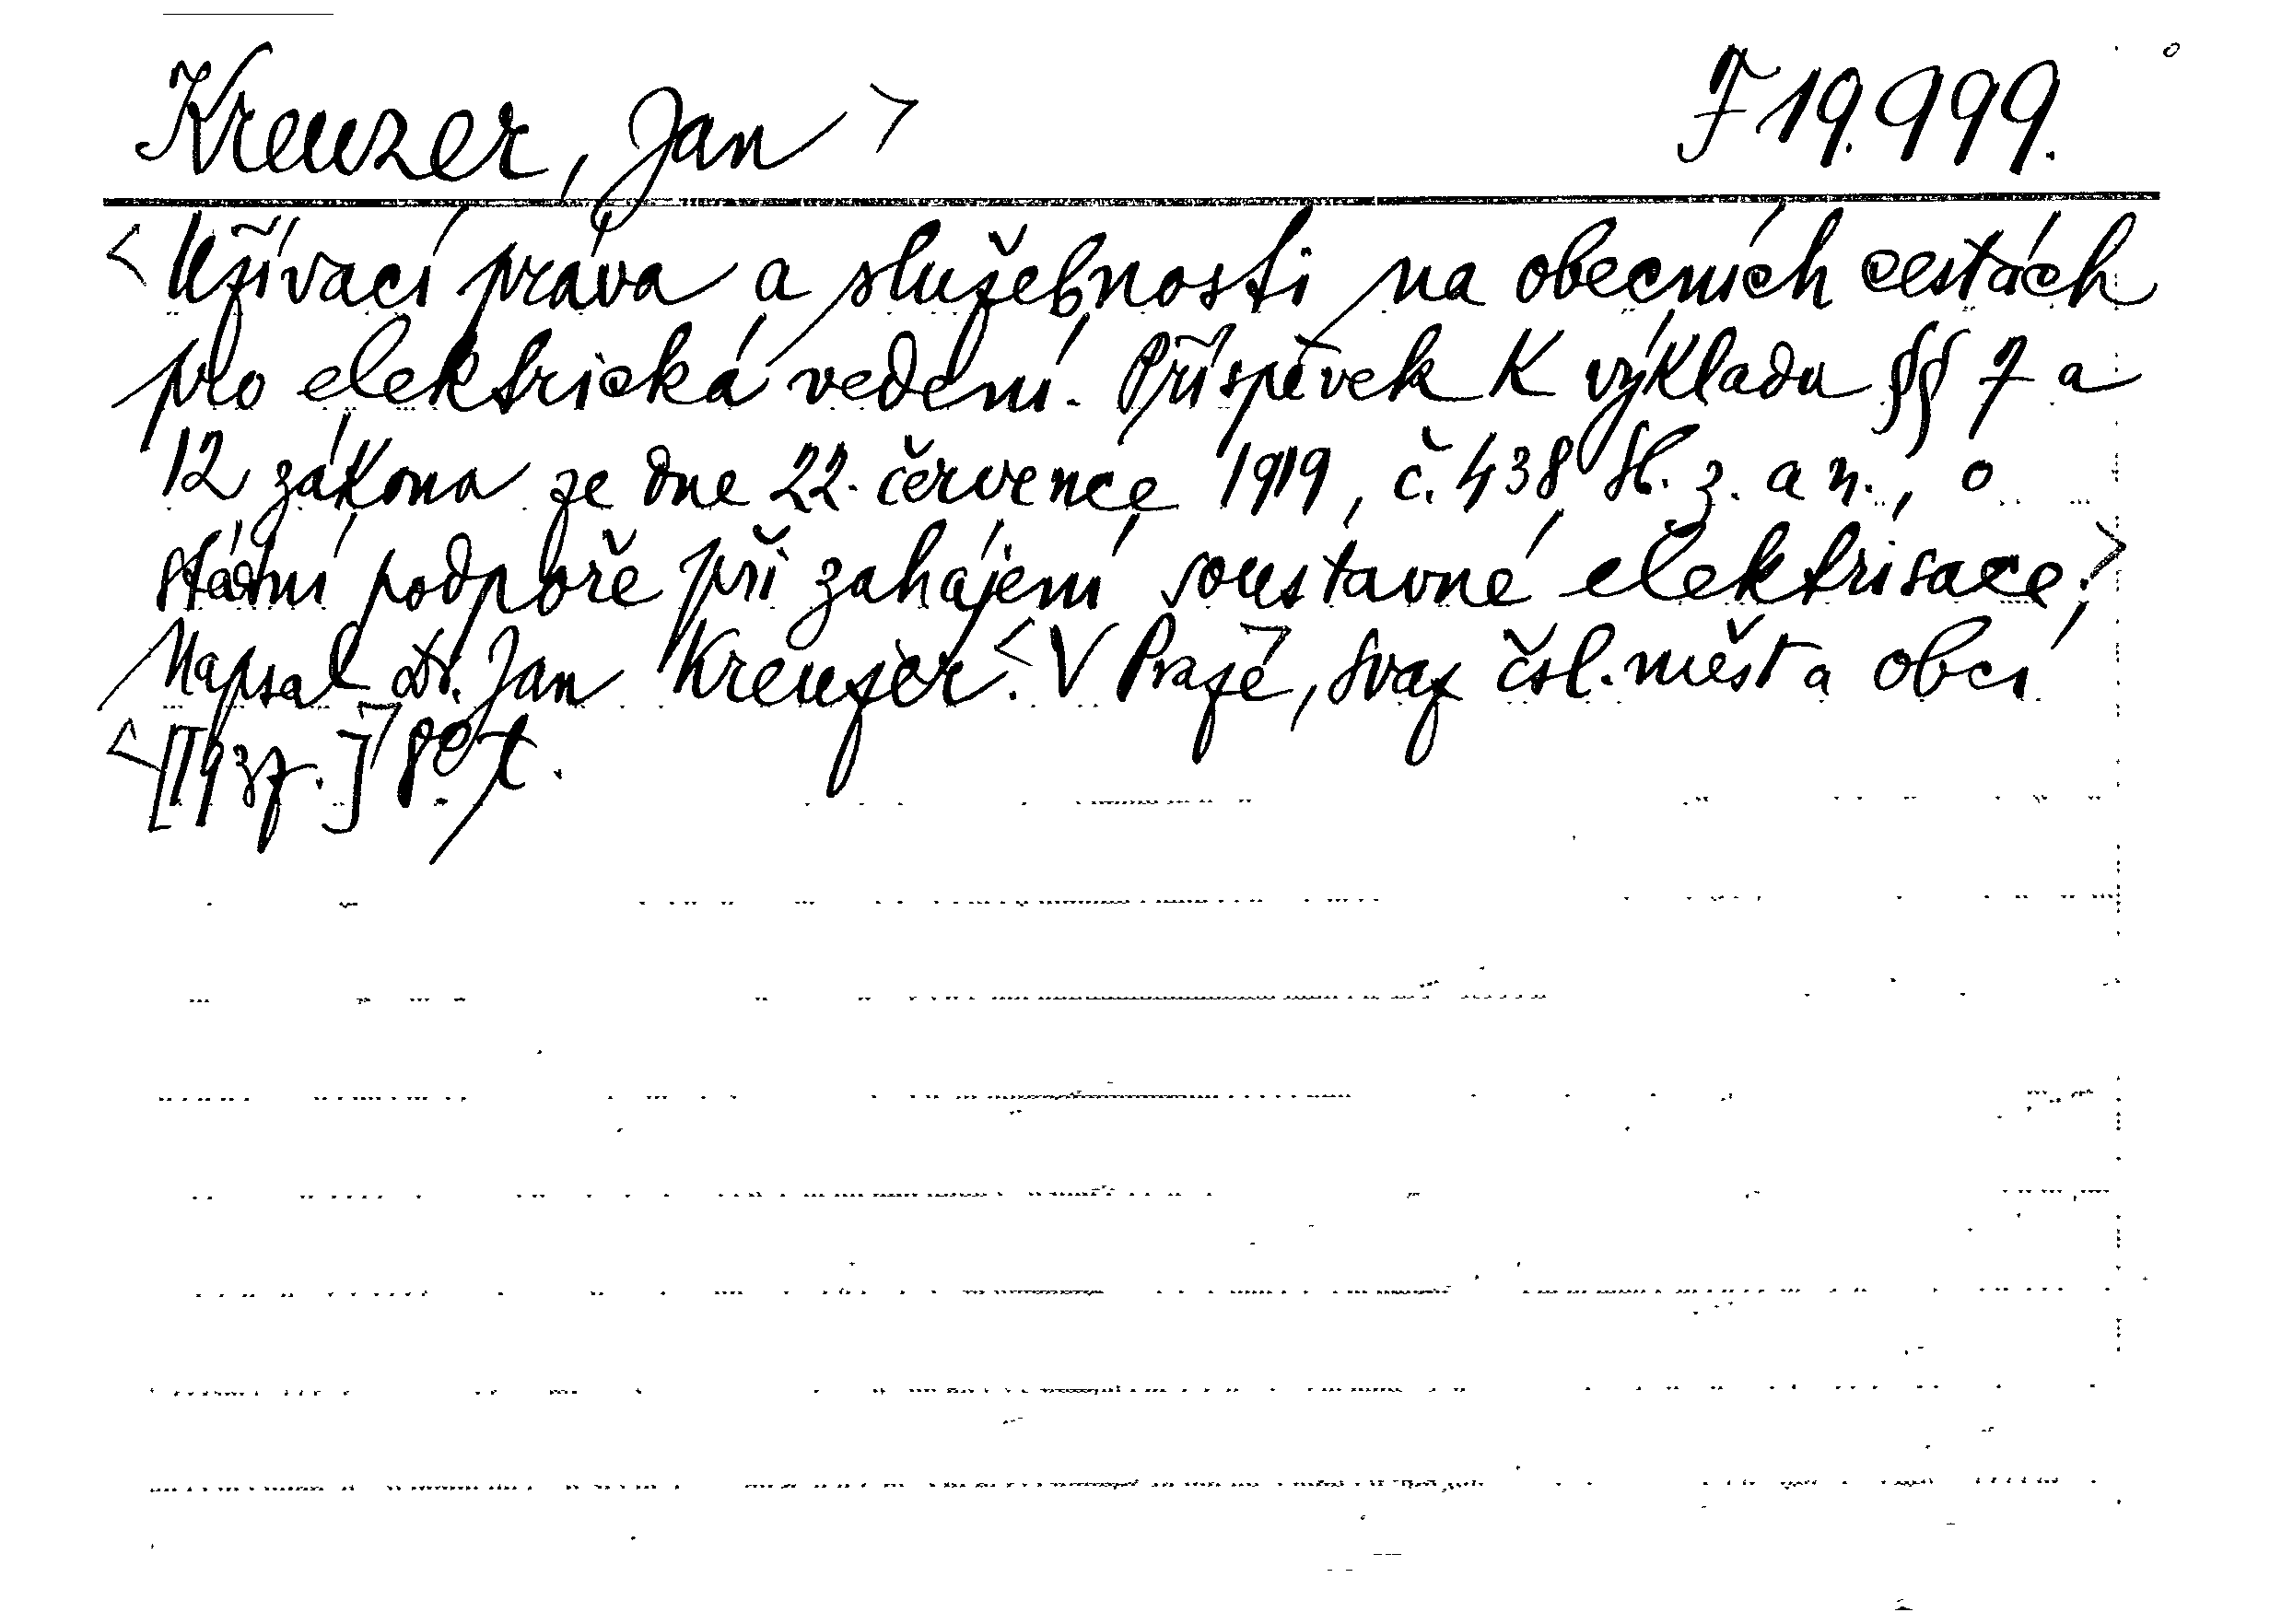 Kreuzer, Jan > F 19.999.
<Užívací práva a služebnosti na obecních cestách
pro elektrická vedení. Příspěvek k výkladu §§ 7 a
12 zákona ze dne 22. července 1919, č. 438 Sb. z. a n., o
státní podpoře při zahájení soustavné elektrisace.>
Napsal Dr. Jan Kreuzer. <V Praze>, Svaz čsl. měst a obcí
<[1937.]> 8° t.